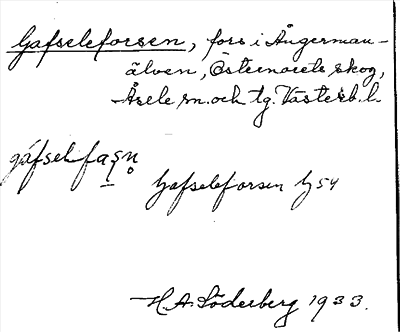 Gafseleforsen, fors i Ångerman-
älven, Östernorets skog,
Åsele sn. och tg. Västerb. l.
gáfselfaṣṇ̥
Gafseleforsen G 54
H.A. Söderberg 1933.